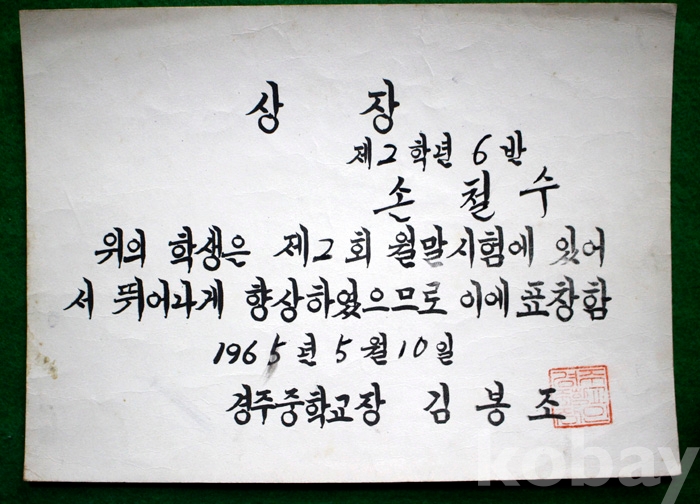 상 장
제2학년 6반
손철수
위의 학생은 제2회 월말시험에 있어
서 뛰어나게 향상하였으므로 이에 표창함
1965년 5월 10일
경주중학교장 김봉조
kobay